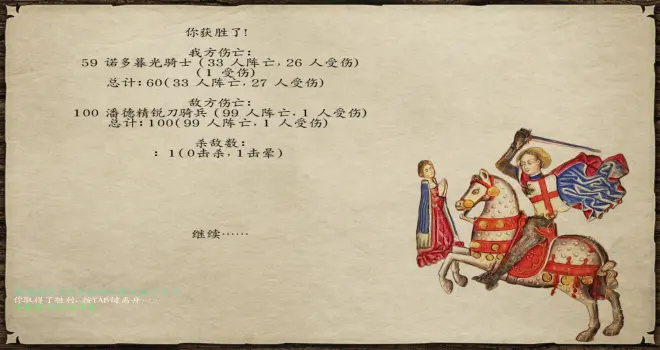 你获胜了!
我方伤亡:
59 诺多暮光骑士 (33 人阵亡, 26 人受伤)
(1 受伤)
总计: 60(33 人阵亡, 27 人受伤)
敌方伤亡:
100 潘德精锐刀骑兵 (99 人阵亡, 1 人受伤)
总计: 100(99 人阵亡, 1 人受伤)
杀敌数:
: 1(0击杀, 1击晕)
继续……
你取得了胜利, 按TAB键离开…